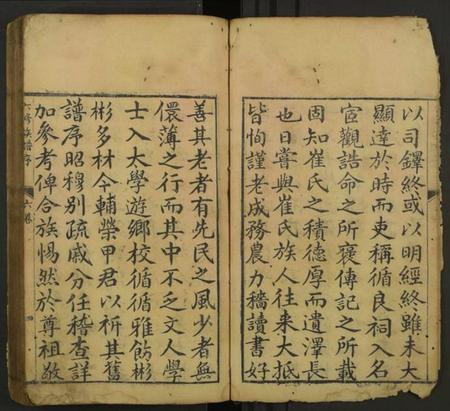 以司鐸終或以明經終雖未大
顯達於時而吏稱循良祠入名
宦觀誥命之所褒傳記之所載
固知崔氏之積德厚而遺澤長
也日嘗與崔氏族人往來大抵
皆恂謹老成務農力穡讀書好
善其老者有先民之風少者無
儇薄之行而其中不乏文人學
士入太學遊鄉校循循雅飭彬
彬多材今輔榮甲君以祈其舊
譜序昭穆別疏戚分任稽查詳
加參考俾合族惕然於尊祖敬
族譜序